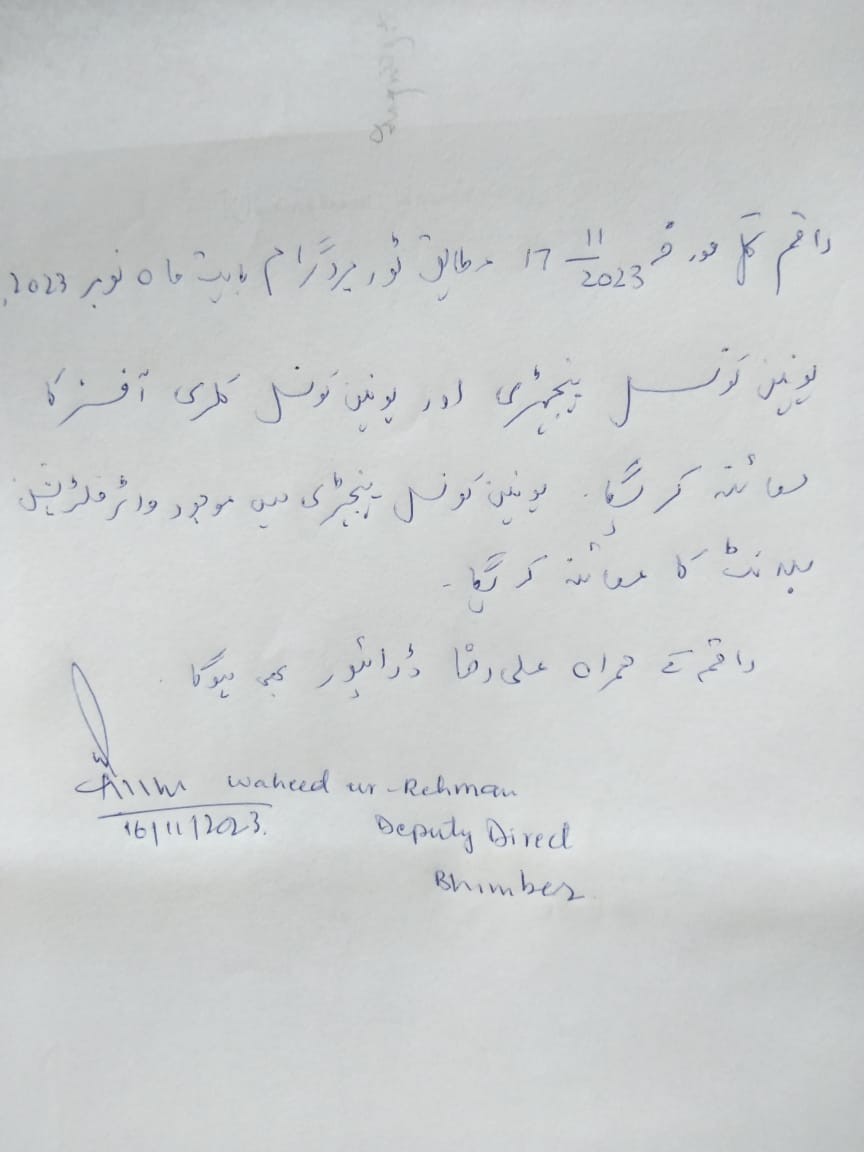 راقم کل مورخہ 17 11/2023 مطابق ٹور پروگرام بابت ماہ نومبر 2023.
یونین کونسل پنجیڑی اور یونین کونسل کلری آفسز کا
معائنہ کرے گا. یونین کونسل پنجیڑی میں موجود واٹر فلٹریشن
پلانٹ کا معائنہ کرے گا۔
راقم کے ہمراہ علی رضا ڈرائیور بھی ہوگا.
Waheed ur-Rehman
16/11/2023. Deputy Direct
Bhimber